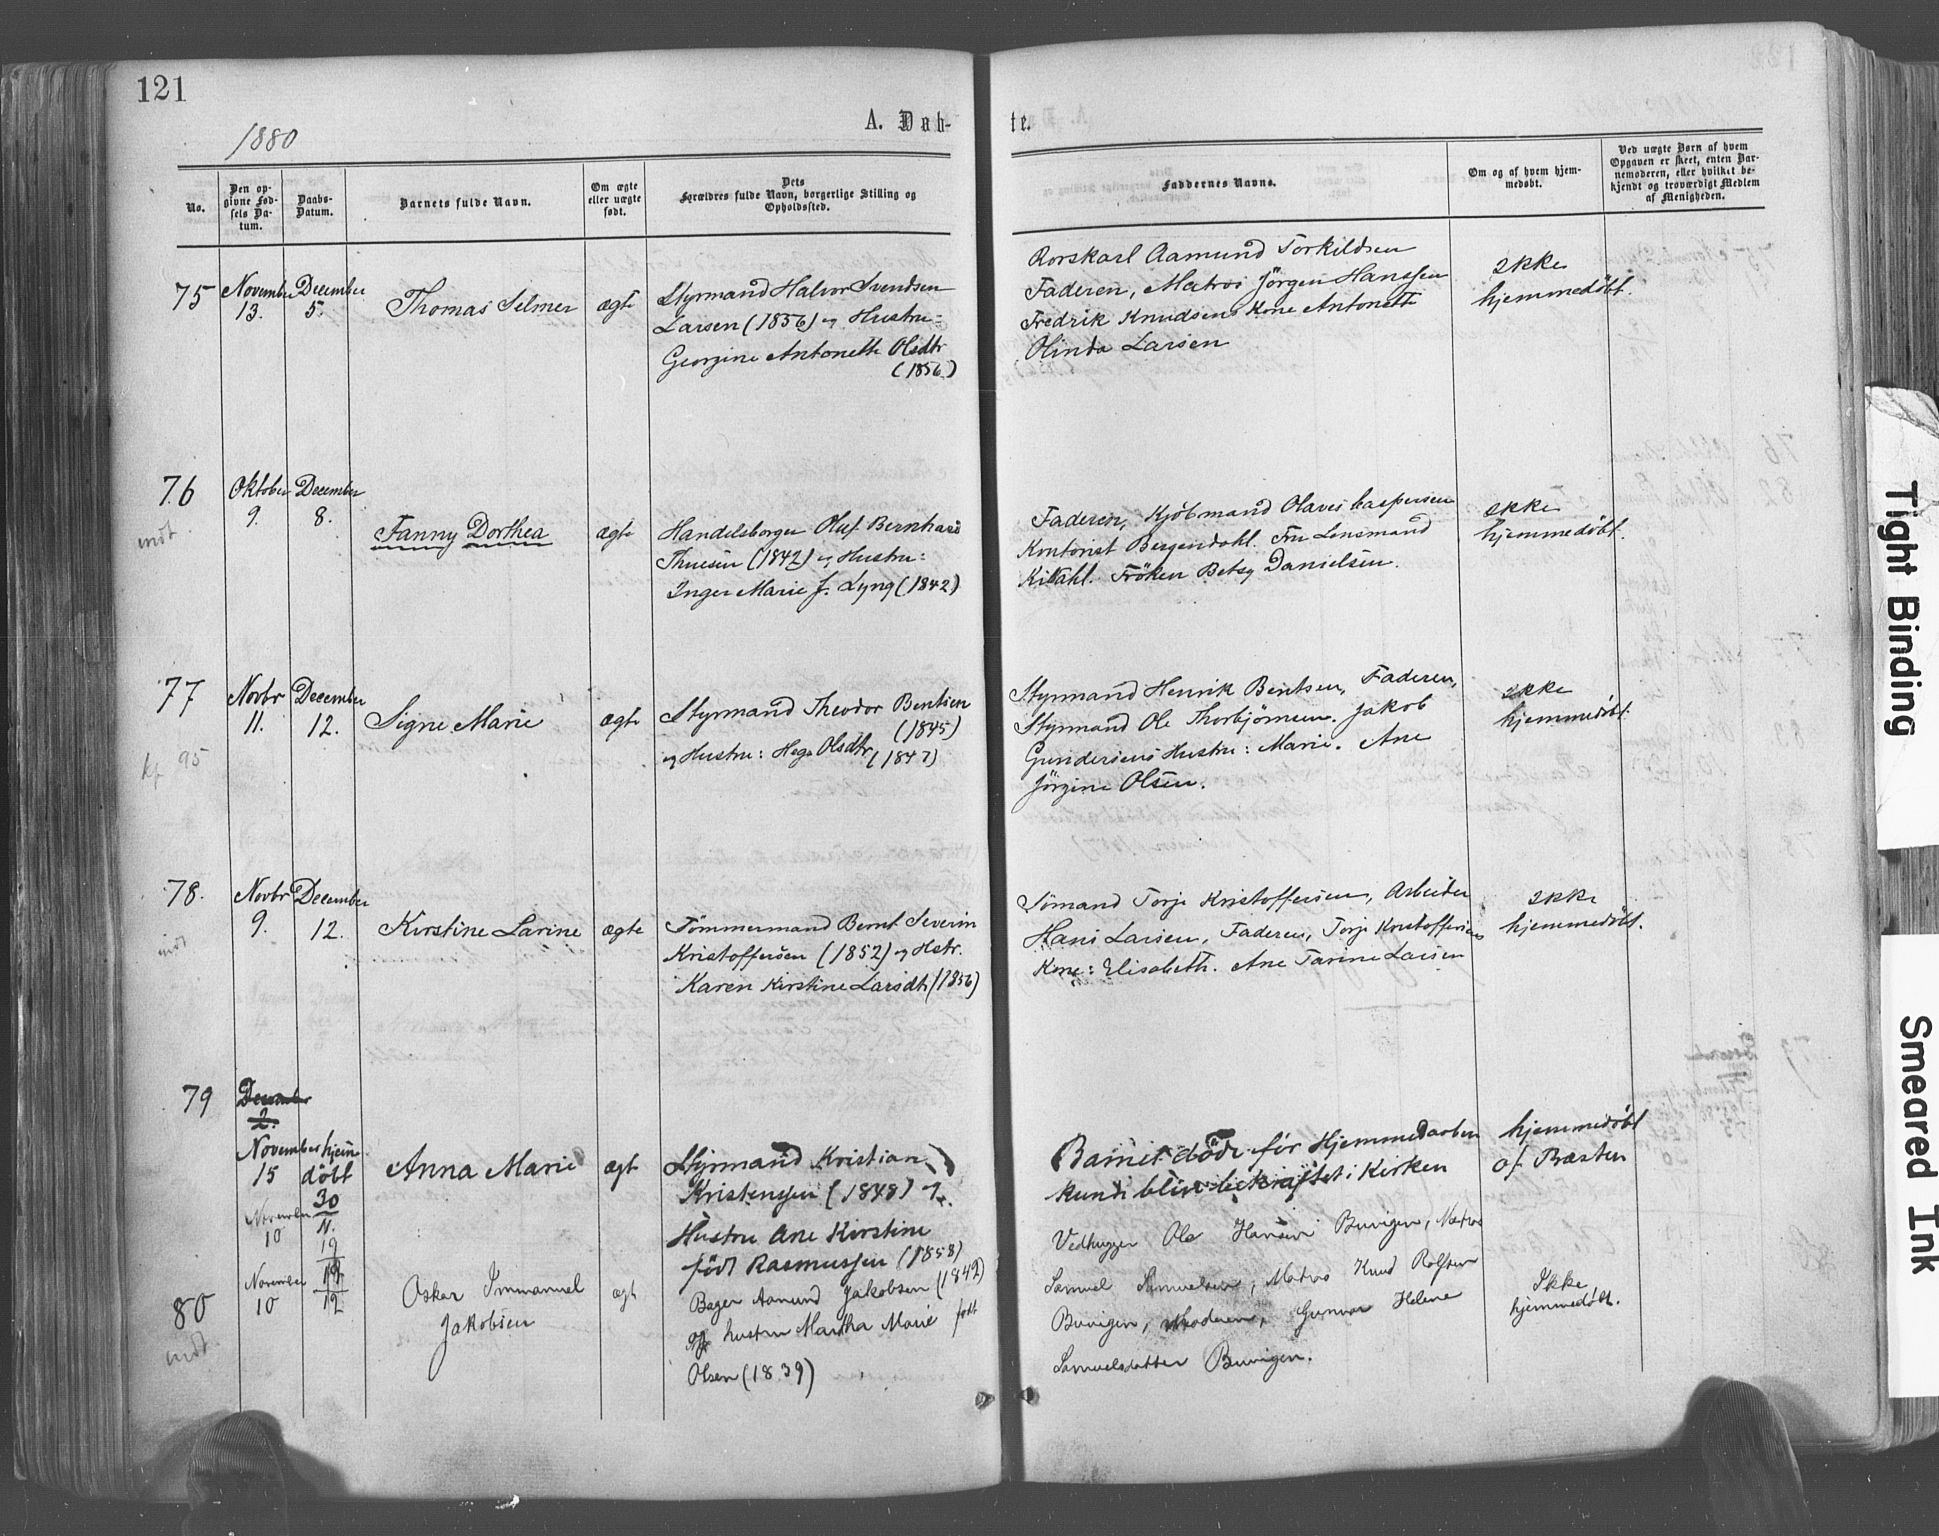 121
1880
A. Døb-
te.
No.
Den op-
givne Fød-
sels Da-
tum.
Daabs-
Datum.
Barnets fulde Navn.
Om ægte
eller uægte
født.
Dets
Forældres fulde Navn, borgerlige Stilling og
Opholdssted.
Faddernes Navne.
Om og af hvem hjem-
medøbt.
Ved uægte Børn af hvem
Opgaven er skeet, enten Bar-
nemoderen, eller hvilket be-
kjendt og troværdigt Medlem
af Menigheden.
75
November
13.
December
5.
Thomas Selmer
ægte
Styrmand Halvor Svendsen
Larsen (1856) og Hustru:
Georgine Antonette Olsdtr
(1856)
Rorskarl Aamund Torkildsen
Faderen, Matros Jörgen Hanssen
Fredrik Knudsens Kone Antonette
Olinda Larsen
Ikke
hjemmedøbt.
76
indt
Oktober
9.
December
8.
Fanny Dorthea
ægte
Handelsborger Oluf Bernhard
Thuesen (1842) og Hustru:
Inger Marie f. Lyng (1842)
Faderen, Kjöbmand Olaves Caspersen
Kontorist Bergendahl. Fru Lensmand
Kildahl. Fröken Betsy Danielsen.
Ikke
hjemmedøbt.
77
kf 95
Novbr
11.
December
12.
Signe Marie
ægte
Styrmand Theodor Bentsen
(1845)
og Hustru: Hege Olsdtr (1847)
Styrmand Henrik Bentsen, Faderen,
Styrmand Ole Thorbjörnsen. Jakob
Gundersens Hustru: Marie. Ane
Jörgine Olsen.
Ikke
hjemmedøbt.
78.
indt
Novbr
9.
December
12.
Kirstine Larine
ægte
Tömmermand Bernt Severin
Kristoffersen (1852) og Hstr.
Karen Kirstine Larsdtr (1856)
Sömand Torje Kristoffersen, Arbeider
Hans Larsen, Faderen, Torje Kristoffersens
Kone: Elisabeth. Ane Tarine Larsen
Ikke
hjemmedøbt.
79
December
2.
November
15
hjem
døbt
30
11.
Anna Marie
ægt
Styrmand Kristian
Kristenssen (1848) og
Hustru Ane Kirstine
født Rasmussen (1858)
Barnet døde før Hjemmedaaben
kunde blive bekræftet i Kirken
hjemmedøbt
af Præsten
November
10
19
12
80
indt
November
10
19
12
Oskar Immanuel
Jakobsen
ægt
Bager Aamund Jakobsen (1842)
og hustru Martha Marie født
Olsen (1839)
Vedhugger Ole Hansen Buvigen, Matros
Samuel Samuelsen, Matros Knud Rolfsen
Buvigen, Moderen, Gunvor Helene
Samuelsdatter Buvigen.
Ikke
hjemmedøbt.
Tight Binding
Smeared Ink